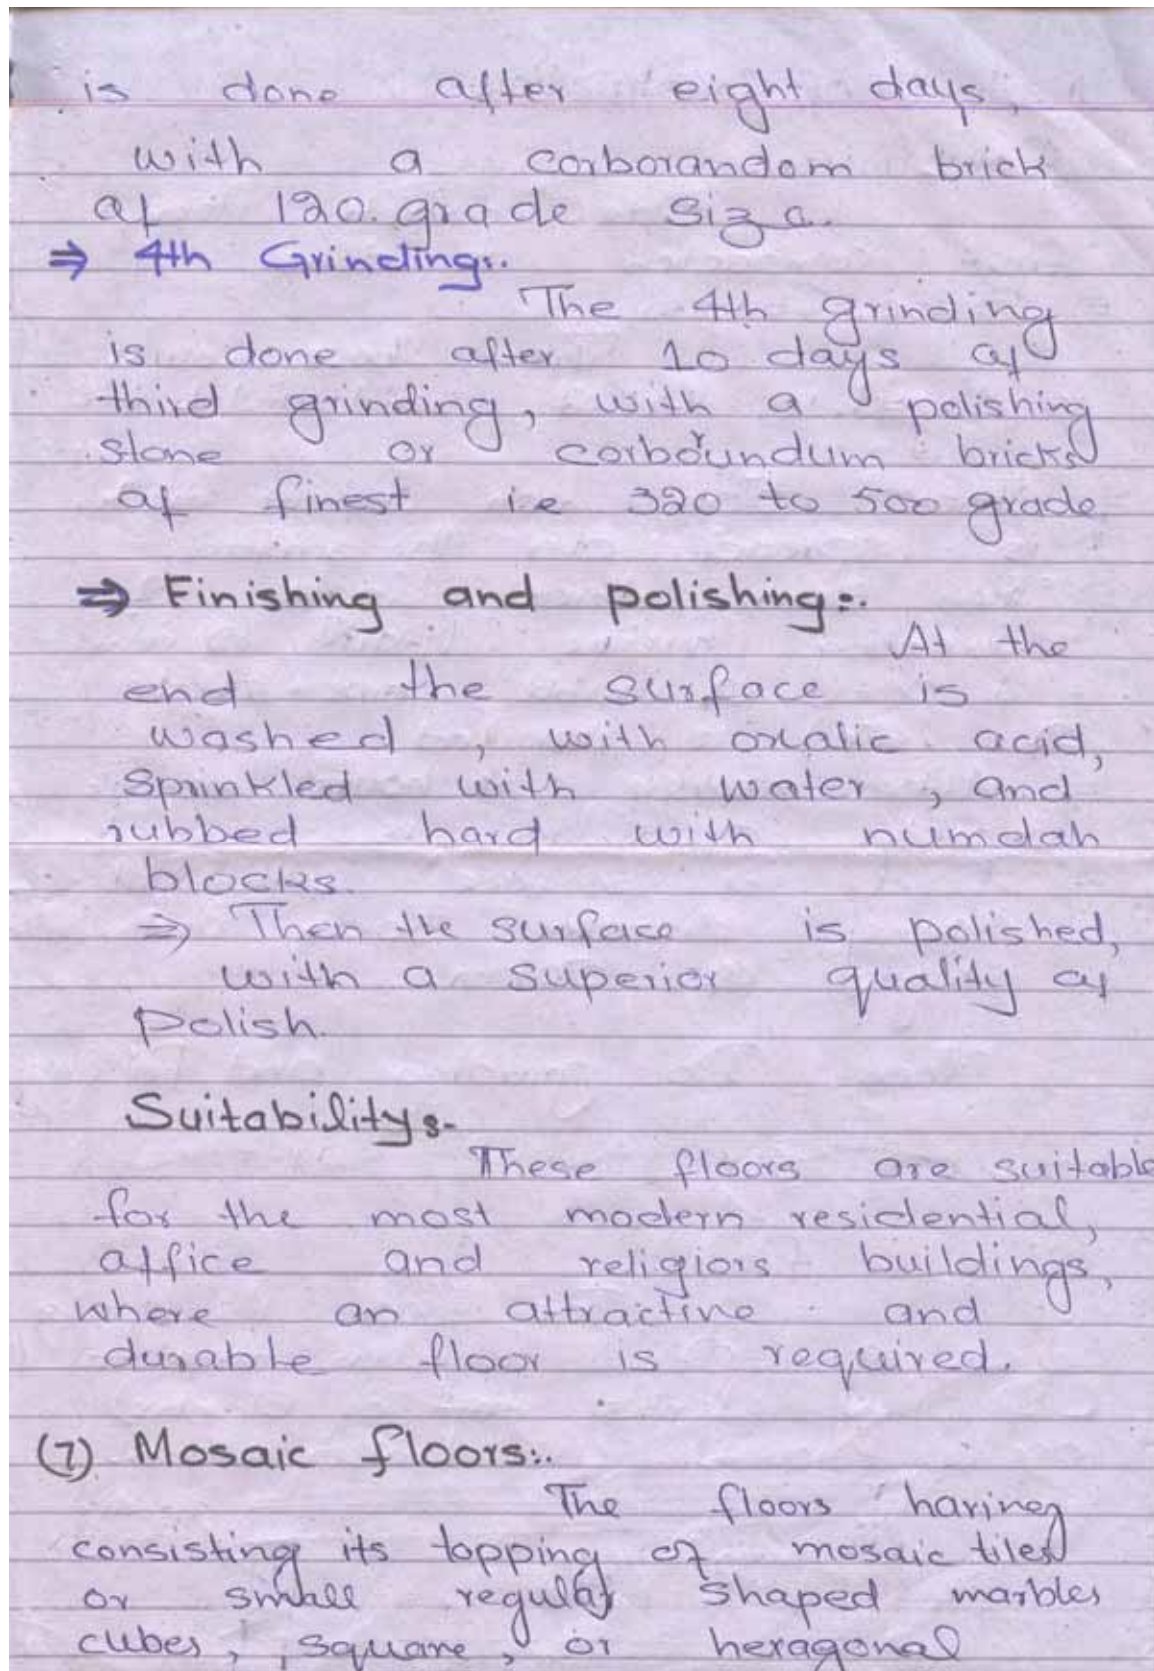 is done after eight days,
with a corborandom brick
of 120. grade size.
⇒ 4th Grinding:.
The 4th grinding
is done after 10 days of
third grinding, with a polishing
stone or corboundum bricks
of finest i.e 320 to 500 grade
⇒ Finishing and polishing:.
At the
end the surface is
washed, with oxalic acid,
Sprinkled with water, and
rubbed hard with numdah
blocks.
⇒ Then the surface is polished,
with a superior quality of
polish.
Suitability:-
These floors are suitable
for the most modern residential,
office and religiors buildings,
where an attractive and
durable floor is required.
(7) Mosaic floors:.
The floors having
consisting its topping of mosaic tiles
or small regular shaped marbles
cubes, square, or hexagonal